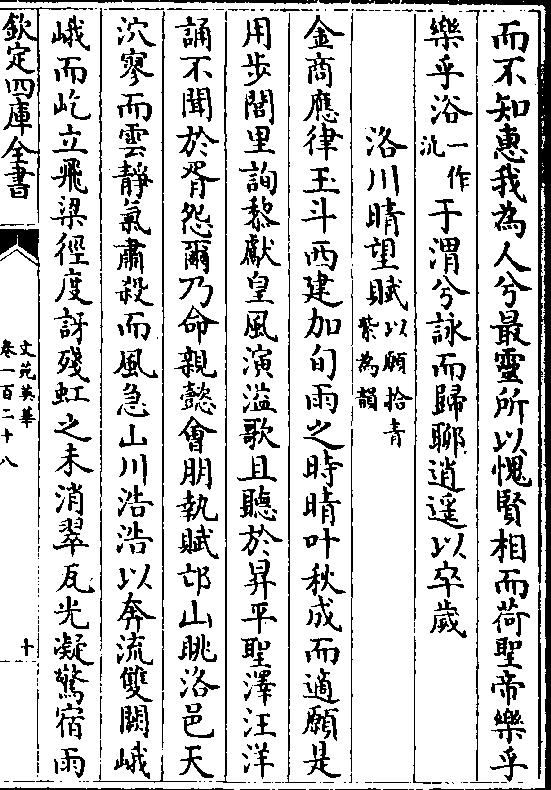 而不知惠我為人兮最靈所以愧賢相而荷聖帝樂乎
樂乎浴一作沇于渭兮詠而歸聊逍遥以卒歲
洛川晴望賦以願拾青紫為韻
金商應律玉斗西建加旬雨之時晴叶秋成而適願是
用步閭里詢黎獻皇風演溢歌且聽於昇平聖澤汪洋
誦不聞於胥怨爾乃命親懿會朋執賦邙山眺洛邑天
泬寥而雲靜氣肅殺而風急山川浩浩以奔流雙闕峨
峨而屹立飛梁徑度訝殘虹之未消翠瓦光凝驚宿雨
欽定四庫全書
文苑英華
卷一百二十八
十